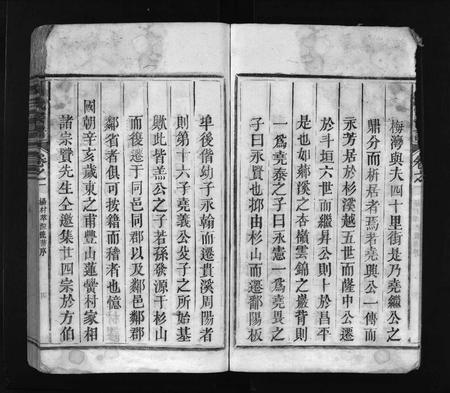 梅灣與夫四十里街是乃堯繼公之
鼎分而析居者焉若堯興公一傳而
永芳居於杉溪越五世而隆中公遷
於斗垣六世而繼昇公則卜於昌平
是也如鄱溪之杏嶺雲錦之巖背則
一爲堯泰之子曰永憲一爲堯畏之
子曰永賢也抑由杉山而遷鄱陽板
埠後偕幼子永翰而遷貴溪周陽者
則第十六子堯義公殳子之所始基
歟此皆盖公之子若孫發源于杉山
而後遷于同邑同郡以及鄰邑鄰郡
鄰省者俱可按籍而稽者也憶
國朝辛亥歲東之甫豐山蓮黌村家相
諸宗賢先生仝邀集廿四宗於方伯
卷之一